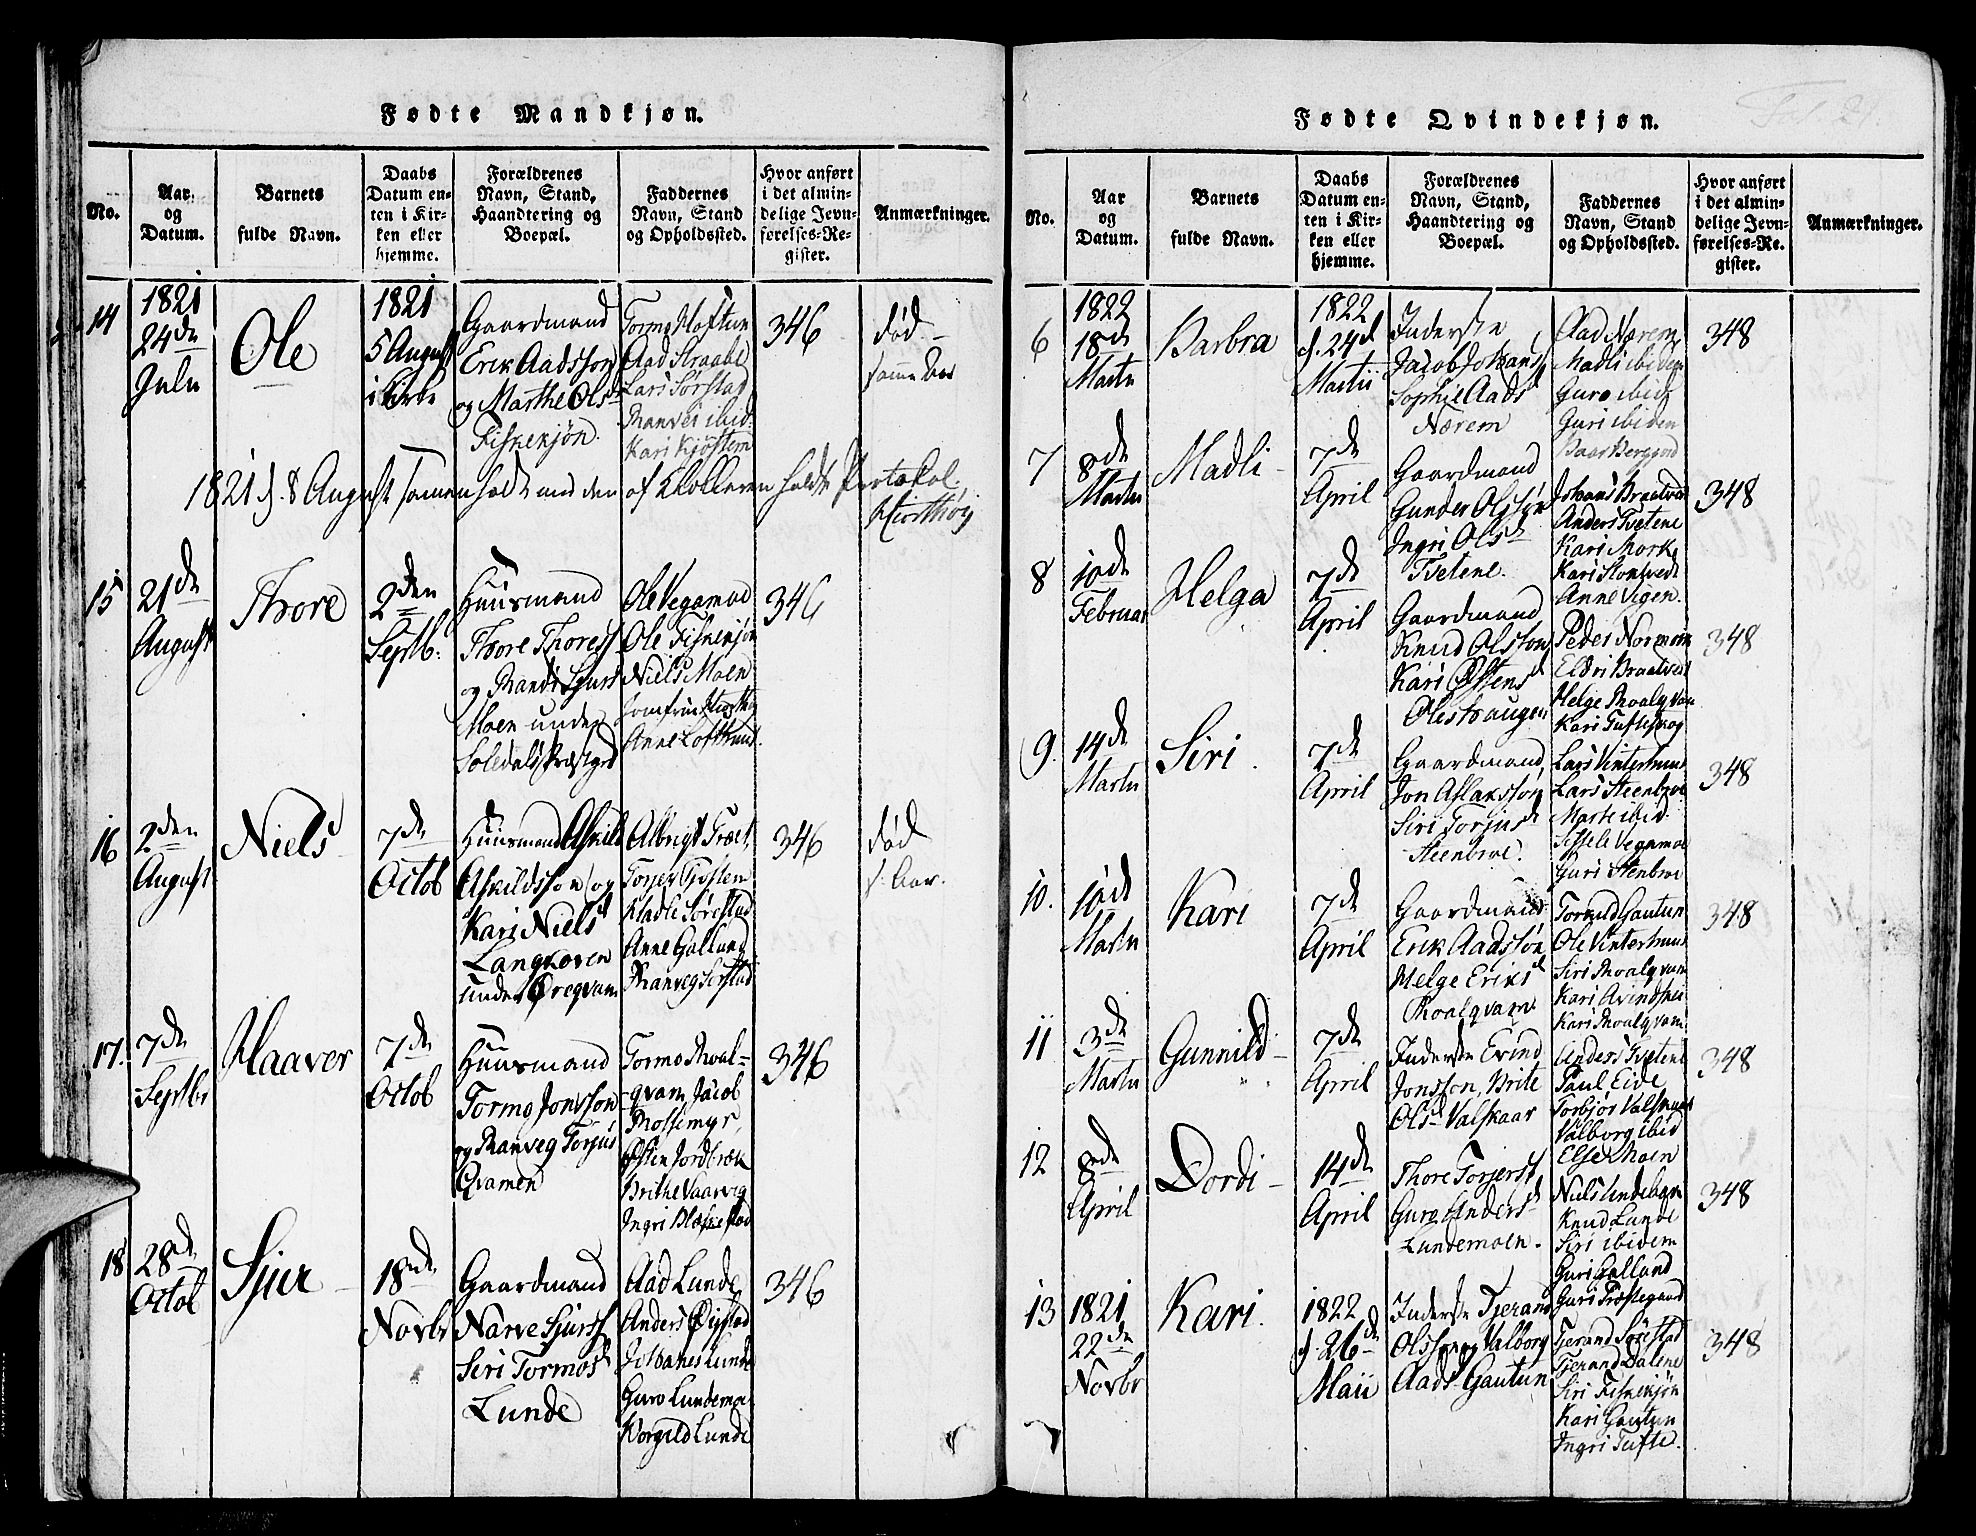 Fødte Mandkjøn.
No.
Aar
og
Datum.
Barnets
fulde Navn.
Daabs
Datum en-
ten i Kir-
ken eller
hjemme.
Forældrenes
Navn, Stand,
Haandtering og
Boepæl.
Faddernes
Navn, Stand
og Opholdssted.
Hvor anført
i det almin-
delige Jevn-
førelses-Re-
gister.
Anmærkninger.
14
1821
24de
Julii
Ole
1821
5 August
i Kirke
Gaardmand
Erik Aadssøn
og Marthe Olsd
Fiskekjøn.
Tormo Høftun
Aad Straabe
Lars Sørstad
Ranvei ibid.
Kari Kjøstem
346
død
samme Aar
1821 d. 8 August sammenholdt med den af Klokkeren holdte Protokol.
Hiorthøy
15
21de
August
Thore
2den
Septb.
Huusmand
Thore Thoress
og Randi Sjurs
Moen under
Soledals Præstgd
Ole Vegamod
Ole Fiskekjøn
Niels Moen
Jomfru Hiorthøy
Anne Lofthuus
346
16
2den
August
Niels
7de
Octob
Huusmand Askild
Askildssøn og
Kari Nielsd
Langkoven
under Øregvam
Albrigt Træet
Torjer Tjøsten
Madli Sørestad
Anne Golland
Ranveg Sørstad
346
død
s. Aar.
17.
7de
Septbr
Haaver
7de
Octob
Huusmand
Tormo Jonssøn
og Ranveg Torjus
Qvamen
Tormo Roal-
qvam, Jacob
Mossemyr,
Østen Jordbræk
Brithe Vaarvig
Ingri Blæsestad
346
18
28de
Octob
Sjur
18de
Novbr
Gaardmand
Narve Sjurss
Siri Tormosd
Lunde
Aad Lunde
Anders Øigstad
Johanes Lunde
Guro Lundemoe
Worgild Lunde
346
Fol. 21.
Fødte Qvindekjøn.
No.
Aar
og
Datum.
Barnets
fulde Navn.
Daabs
Datum en-
ten i Kir-
ken eller
hjemme.
Forældrenes
Navn, Stand,
Haandtering og
Boepæl.
Faddernes
Navn, Stand
og Opholdssted.
Hvor anført
i det almin-
delige Jevn-
førelses-Re-
gister.
Anmærkninger.
6
1822
18de
Martii
Barbra
1822
d. 24de
Martii
Inderste
Jacob Johans
Sophie Aads
Nærem
Aad Nærem
Madli ibidem
Guro ibid
Guri ibidem
348
7
8de
Martii
Madli
7de
April
Gaardmand
Gunder Olssøn
Ingri Olsd
Tvetene.
Johans Braatved
Anders Tvetene
Kari Mork
Kari Stontvedt
Anne Vigen.
348
8
10de
Februar
Helga
7de
April
Gaardmand
Knud Olssøn
Kari Østensd
Olestraugen
Peder Normein
Eldri Braatved
Helge Roalqvam
Kari Tufteskog
348
9.
14de
Martii
Siri
7de
April
Gaardmand
Jon Aslakssøn
Siri Torjusd
Steenbroe.
Lars Vinterhuus
Lars Steenbroe
Marte ibid
Sissele Vegamot
Guri Stenbroe
348
10.
10de
Martii
Kari
7de
April
Gaardmand
Erik Aadssøn
Helge Eriksd
Roalqvam
Torkild Gautun
Ole Vinterhuus
Siri Roalqvam
Kari Avindsnei
Kari Roalqvam
348
11
3de
Martii
Gunnild
7de
April
Inderste Evind
Jonssøn, Brite
Olsd Valskaar
Anders Tvetene
Paul Eide
Torbjør Valskaar
Valborg ibid
Else Moen
348
12
8de
April
Dordi
14de
April
Thore Torjerss
Guro Andersd
Lundemoen.
Niels Lindebrn
Knud Lunde
Siri ibidem
Guri Golland
Guri Præstegaard
348
13
1821
22de
Novbr
Kari.
1822
d. 26de
Maii
Inderste Tjerand
Olssøn og Valborg
Aadsd Gautun
Tjerand Sørestad
Tjerand Dalene
Siri Fiskekjøn
Kari Gautun
Ingri Tufte.
348